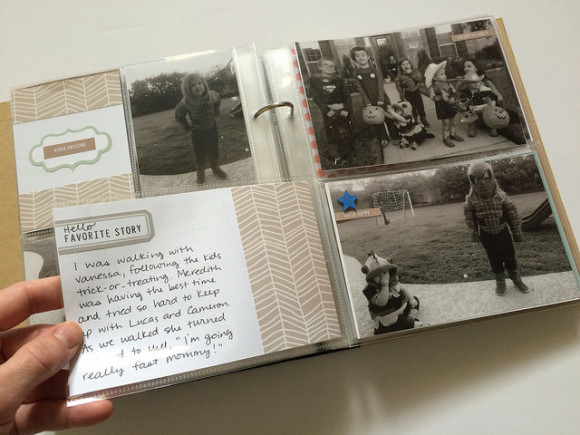 KINDA AWESOME
Hello
FAVORITE STORY
I was walking with
vanessa, following the kids
trick-or-treating. Meredith
was having the best time
and tried so hard to keep
up with Lucas and Cameron.
As we walked she turned
to yell, "i'm going
really fast mommy!"